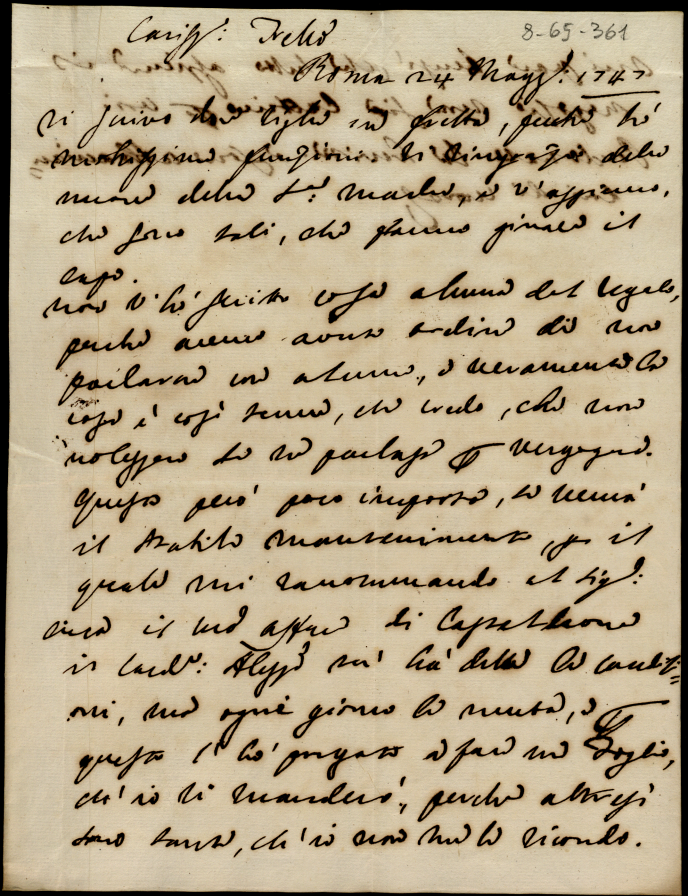 8-65-361
Cariss:
Roma 24 Magg: 1747
vi scrivo due righe in fretta, perche hò
moltissime funzioni di
della S:ª madre, e v'assicuro,
che sono tali, che fanno girare il
capo.
non v'hò scritto cosa alcuna del regalo,
perche aveuo avuto ordine di non
parlarne con alcuno, e veramente la
cosa è così tenue, che credo, che non
volessero se ne parlasse vergogna.
questo però poco importa, se verrà
il stabile mantenimento, il
quale mi raccommando al sig:
circa il affare di
il Card: Aless: mi hà detto le condit=
oni, ma ogni giorno le muta, e
questo l'hò pregato a fare un foglio,
ch'io vi manderò, perche altresì
sono tante, ch'io non me le ricordo.